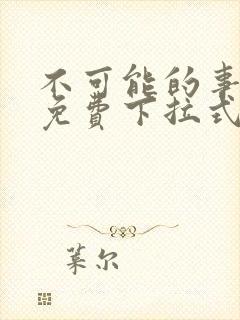 不可能的事
免费下拉式
葉尔